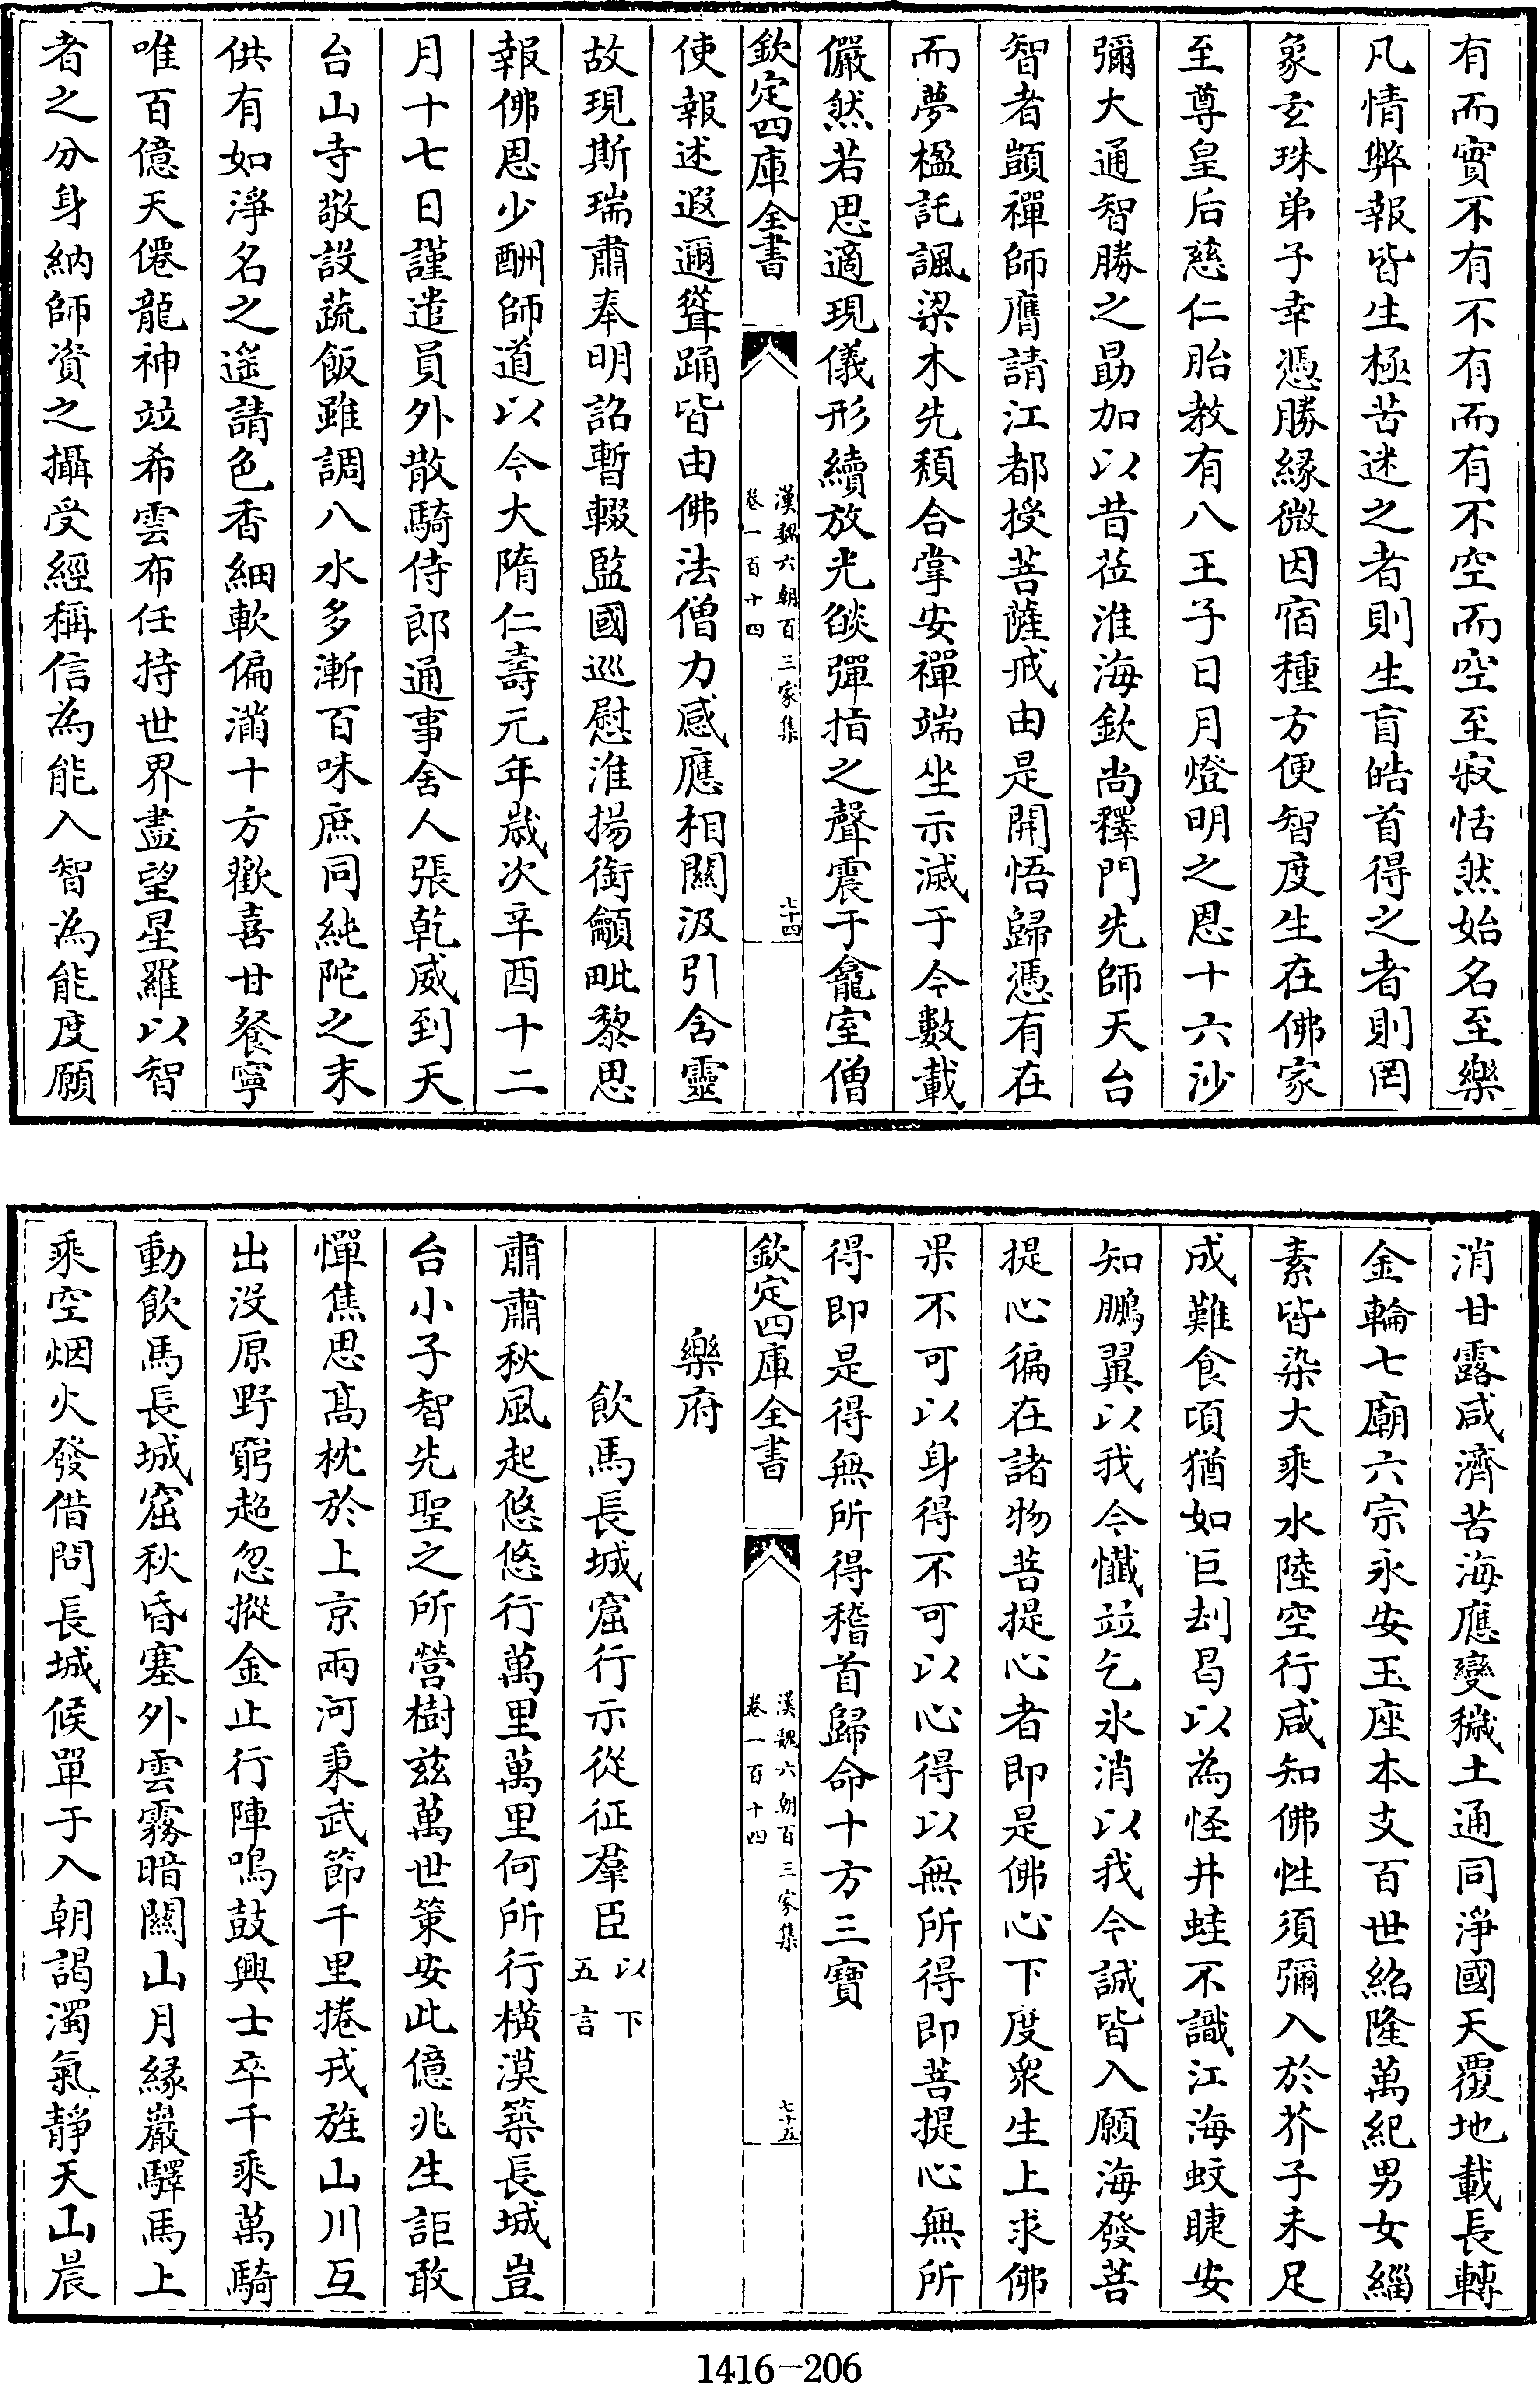 有而實不有不有而有不空而空至寂恬然始名至樂
凡情弊報皆生極苦迷之者則生盲皓首得之者則罔
象玄珠弟子幸憑勝縁微因宿種方便智度生在佛家
至尊皇后慈仁胎教有八王子日月燈明之恩十六沙
彌大通智勝之勗加以昔莅淮海欽尚釋門先師天台
智者顗禪師膺請江都授菩薩戒由是開悟歸憑有在
而夢楹託諷梁木先頹合掌安禪端坐示滅于今數載
儼然若思適現儀形續放光燄彈指之聲震于龕室僧
欽定四庫全書
漢魏六朝百三家集
卷一百十四
七十四
使報述遐邇聳踊皆由佛法僧力感應相關汲引含靈
故現斯瑞肅奉明詔暫輟監國巡慰淮揚銜顧毗黎思
報佛恩少酬師道以今大隋仁壽元年歲次辛酉十二
月十七日謹遣員外散騎侍郎通事舍人張乾威到天
台山寺敬設蔬飯雖調八水多漸百味庶同純陀之末
供有如淨名之遙請色香細軟偏滿十方歡喜甘餐寧
唯百億天僊龍神竝希雲布任持世界盡望星羅以智
者之分身納師資之攝受經稱信為能入智為能度願
消甘露咸濟苦海應變穢土通同淨國天覆地載長轉
金輪七廟六宗永安玉座本支百世紹隆萬紀男女緇
素皆染大乘水陸空行咸知佛性須彌入於芥子未足
成難食頃猶如巨刦曷以為怪井蛙不識江海蚊睫安
知鵬翼以我今懺竝乞氷消以我今誠皆入願海發菩
提心徧在諸物菩提心者即是佛心下度衆生上求佛
果不可以身得不可以心得以無所得即菩提心無所
得即是得無所得稽首歸命十方三寶
欽定四庫全書
漢魏六朝百三家集
卷一百十四
七十五
樂府
飲馬長城窟行示從征羣臣以下五言
肅肅秋風起悠悠行萬里萬里何所行橫漠築長城豈
台小子智先聖之所營樹兹萬世策安此億兆生詎敢
憚焦思髙枕於上京兩河秉武節千里捲戎旌山川互
出没原野窮超忽摐金止行陣鳴鼓興士卒千乘萬騎
動飲馬長城窟秋昏塞外雲霧暗關山月縁巖驛馬上
乘空烟火發借問長城候單于入朝謁濁氣靜天山晨
1416-206